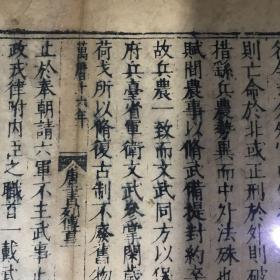 則亡命於北或正刑於
措繇兵農勢異而中外法殊也
賦間農事以脩武備提封約
故兵農一致而文武同方以
府兵臺省軍衛文武參掌閑
荷戈所以脩復古制不廢舊物
萬曆十六年
唐書列傳
止於奉朝請六軍不主武事止
政戎律附內臣之職百一載式